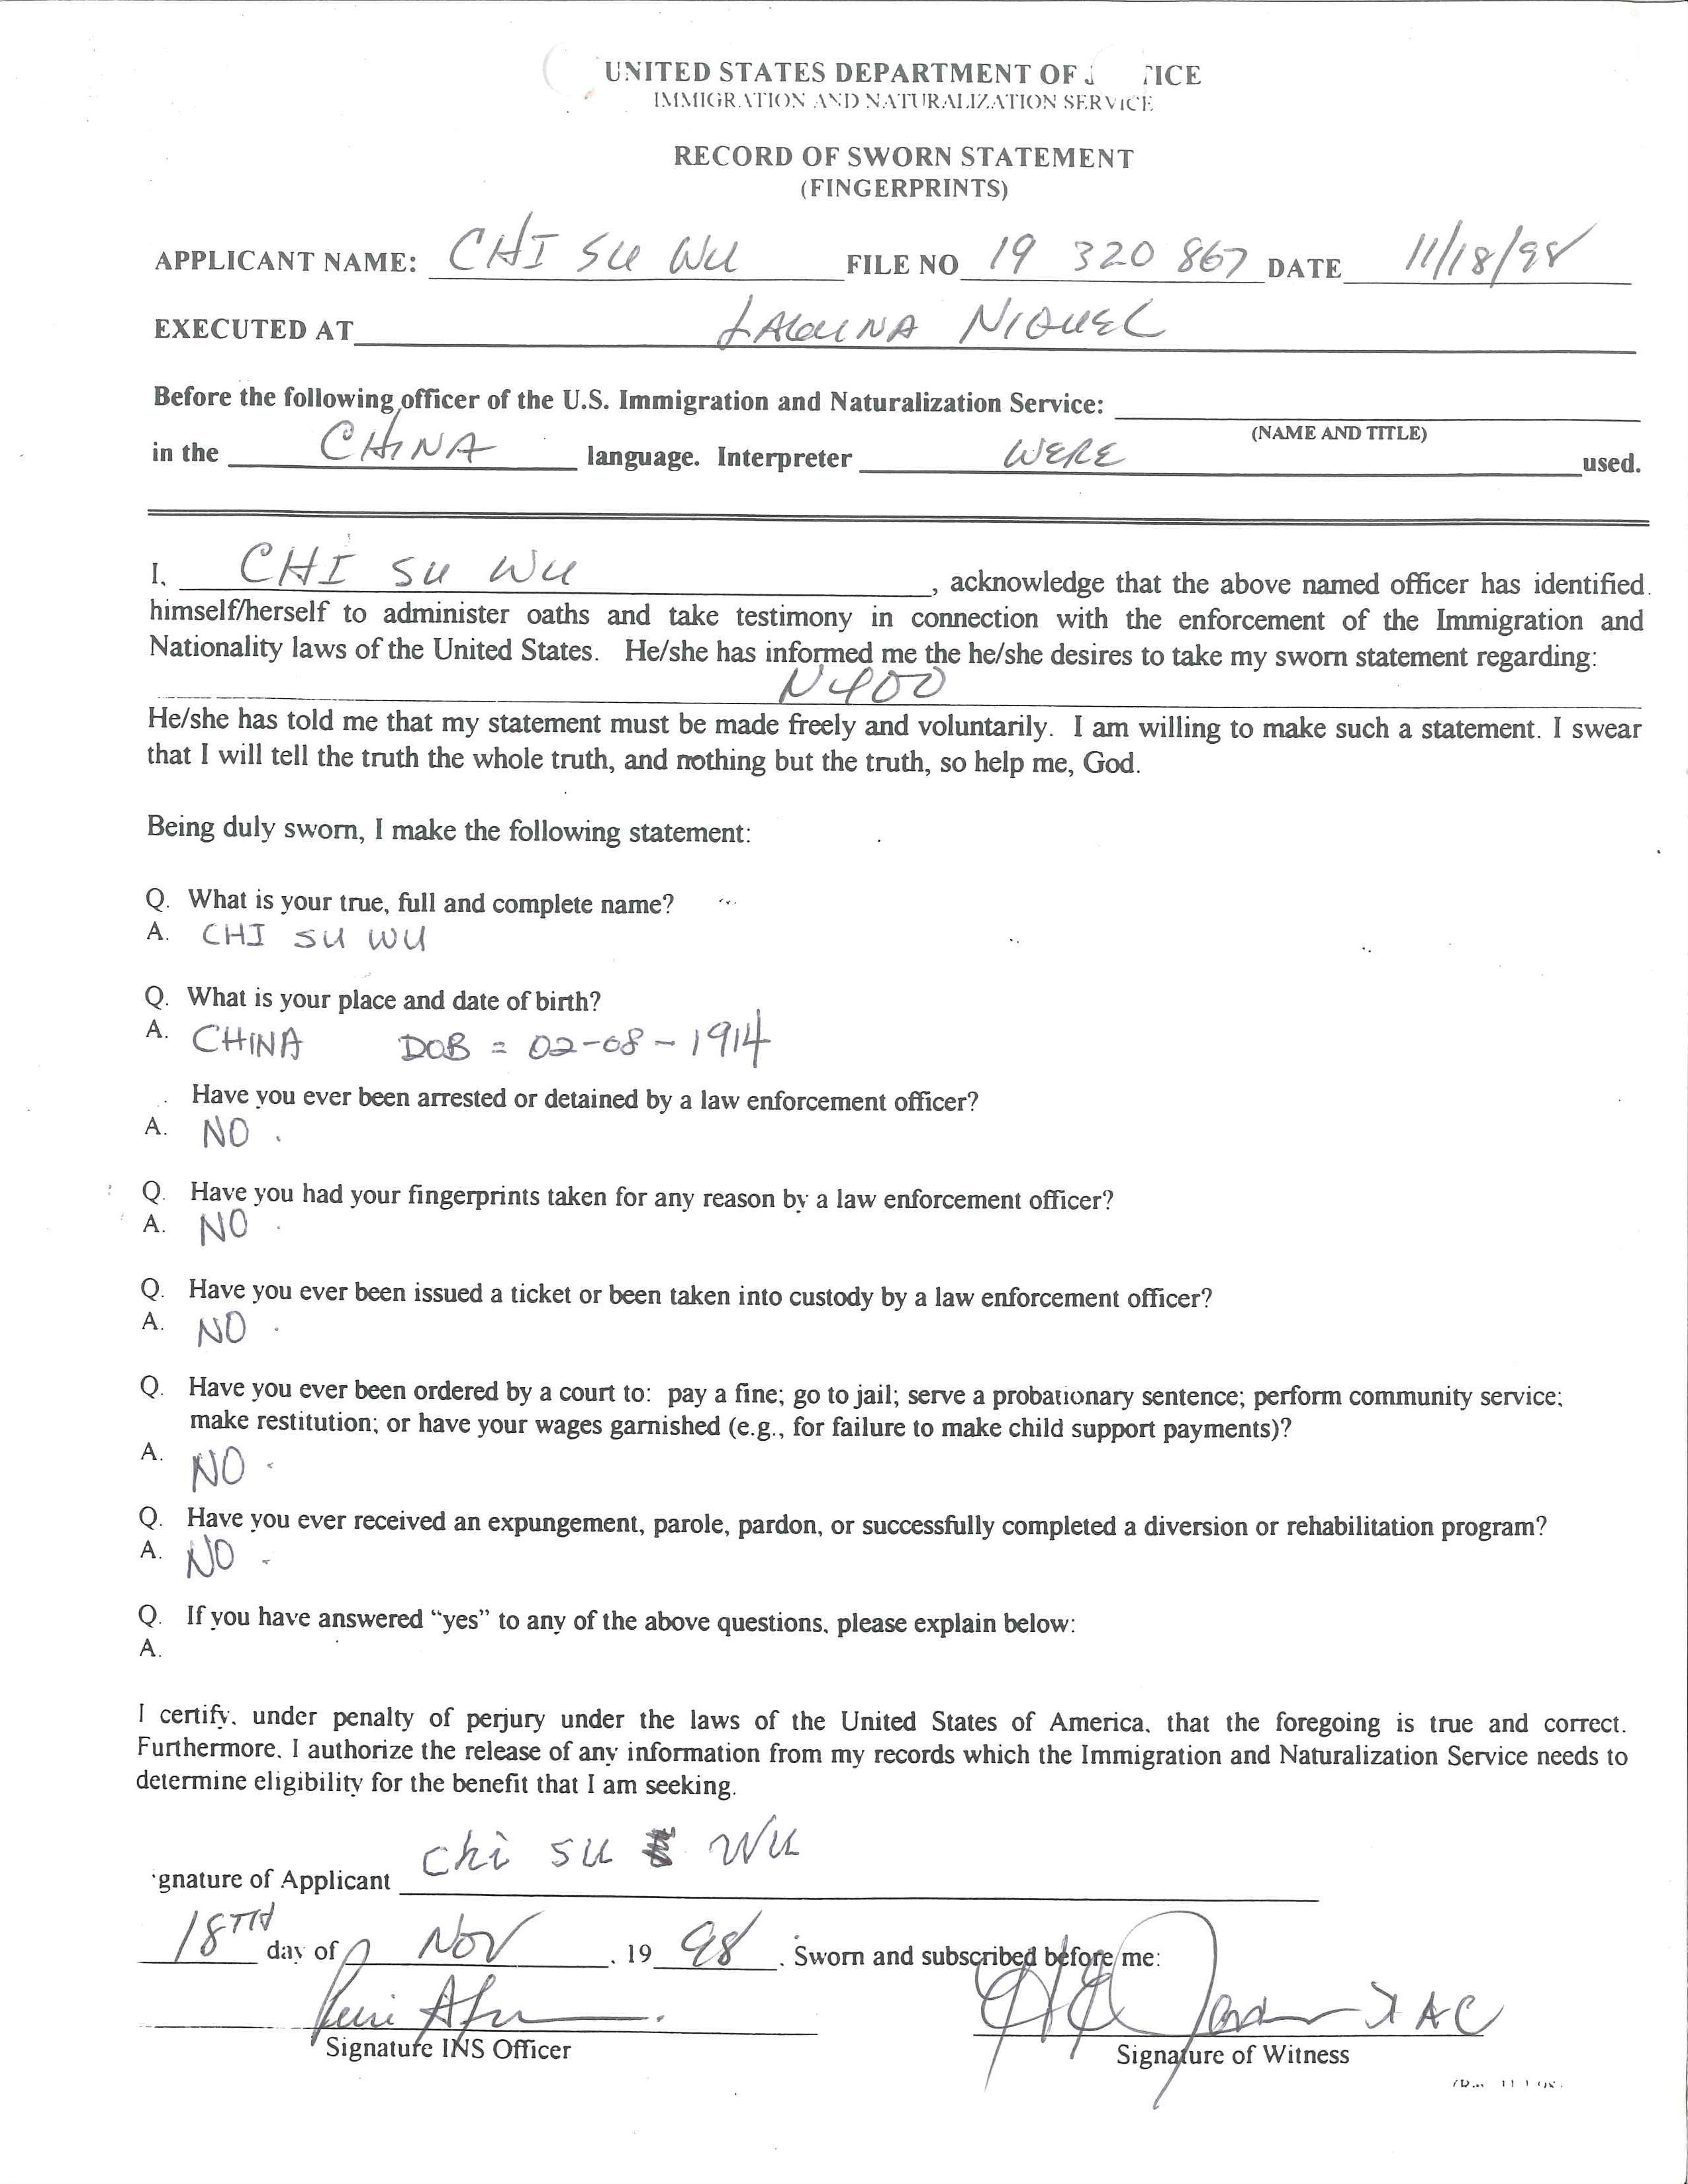 UNITED STATES DEPARTMENT OF J TICE
IMMIGRATION AND NATURALIZATION SERVICE
RECORD OF SWORN STATEMENT
(FINGERPRINTS)
APPLICANT NAME: CHI SU WU FILE NO 19 320 867 DATE 11/18/98
EXECUTED AT LAGUNA NIGUEL
Before the following officer of the U.S. Immigration and Naturalization Service:
(NAME AND TITLE)
in the CHINA language. Interpreter WERE used.
I, CHI SU WU, acknowledge that the above named officer has identified
himself/herself to administer oaths and take testimony in connection with the enforcement of the Immigration and
Nationality laws of the United States. He/she has informed me the he/she desires to take my sworn statement regarding:
N400
He/she has told me that my statement must be made freely and voluntarily. I am willing to make such a statement. I swear
that I will tell the truth the whole truth, and nothing but the truth, so help me, God.
Being duly sworn, I make the following statement:
Q. What is your true, full and complete name?
A. CHI SU WU
Q. What is your place and date of birth?
A. CHINA DOB = 02-08-1914
Have you ever been arrested or detained by a law enforcement officer?
A. NO.
Q. Have you had your fingerprints taken for any reason by a law enforcement officer?
A. NO.
Q. Have you ever been issued a ticket or been taken into custody by a law enforcement officer?
A. NO.
Q. Have you ever been ordered by a court to: pay a fine; go to jail; serve a probationary sentence; perform community service;
make restitution; or have your wages garnished (e.g., for failure to make child support payments)?
A. NO.
Q. Have you ever received an expungement, parole, pardon, or successfully completed a diversion or rehabilitation program?
A. NO.
Q. If you have answered "yes" to any of the above questions, please explain below:
A.
I certify, under penalty of perjury under the laws of the United States of America, that the foregoing is true and correct.
Furthermore, I authorize the release of any information from my records which the Immigration and Naturalization Service needs to
determine eligibility for the benefit that I am seeking.
gnature of Applicant Chi su Wu
18TH day of Nov, 19 98. Sworn and subscribed before me:
Signature INS Officer
Signature of Witness